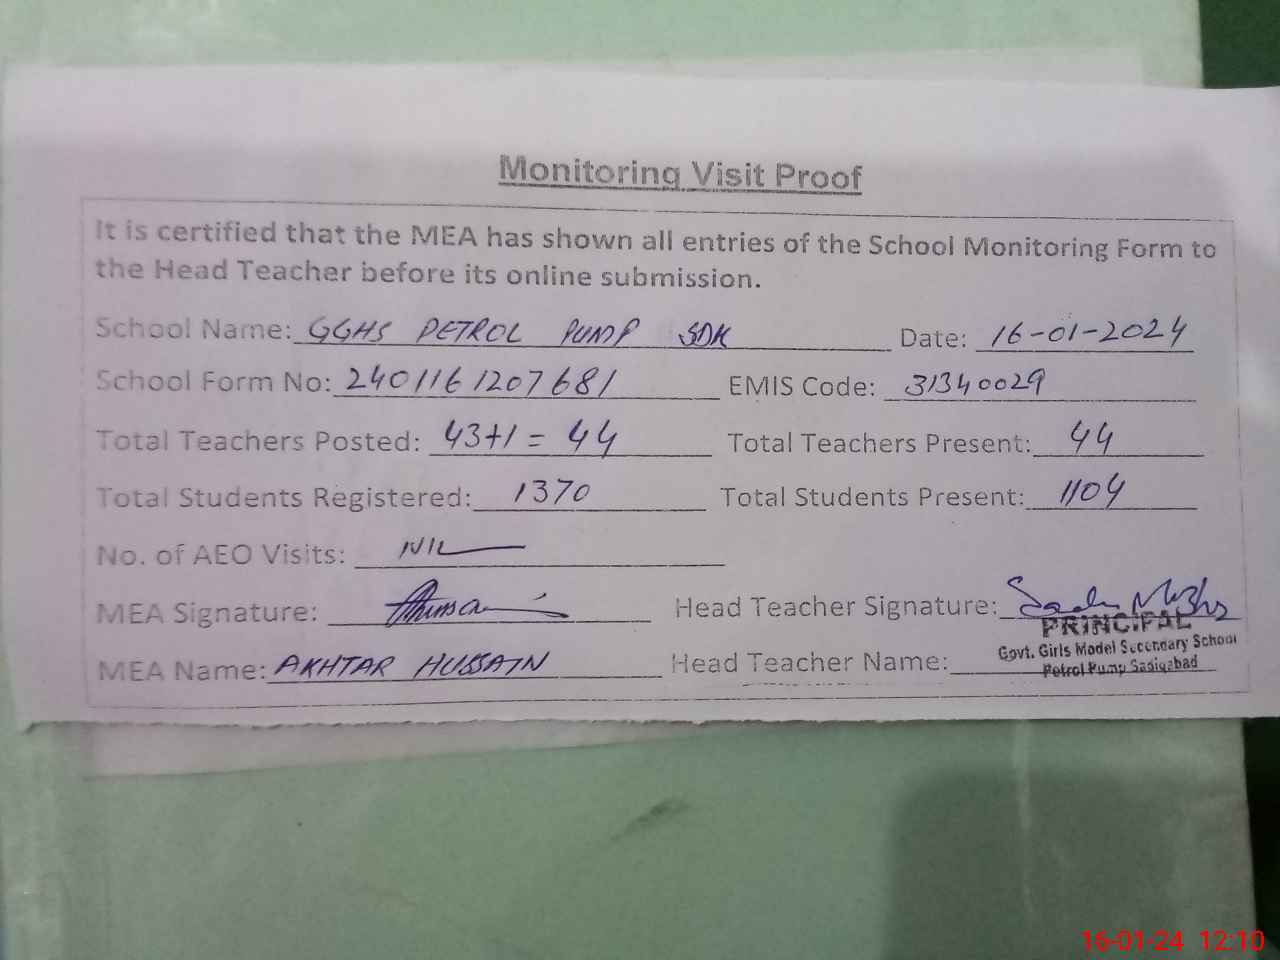 Monitoring Visit Proof
It is certified that the MEA has shown all entries of the School Monitoring Form to
the Head Teacher before its online submission.
School Name: GGHS PETROL PUMP SDK Date: 16-01-2024
School Form No: 2401161207681 EMIS Code: 31340029
Total Teachers Posted: 43+1 = 44 Total Teachers Present: 44
Total Students Registered: 1370 Total Students Present: 1104
No. of AEO Visits: NIL
MEA Signature: Head Teacher Signature:
PRINCIPAL
Govt. Girls Model Secendary School
MEA Name: AKHTAR HUSSAIN Head Teacher Name:
Petrol Pump Sadiqabad
16-01-24 12:10